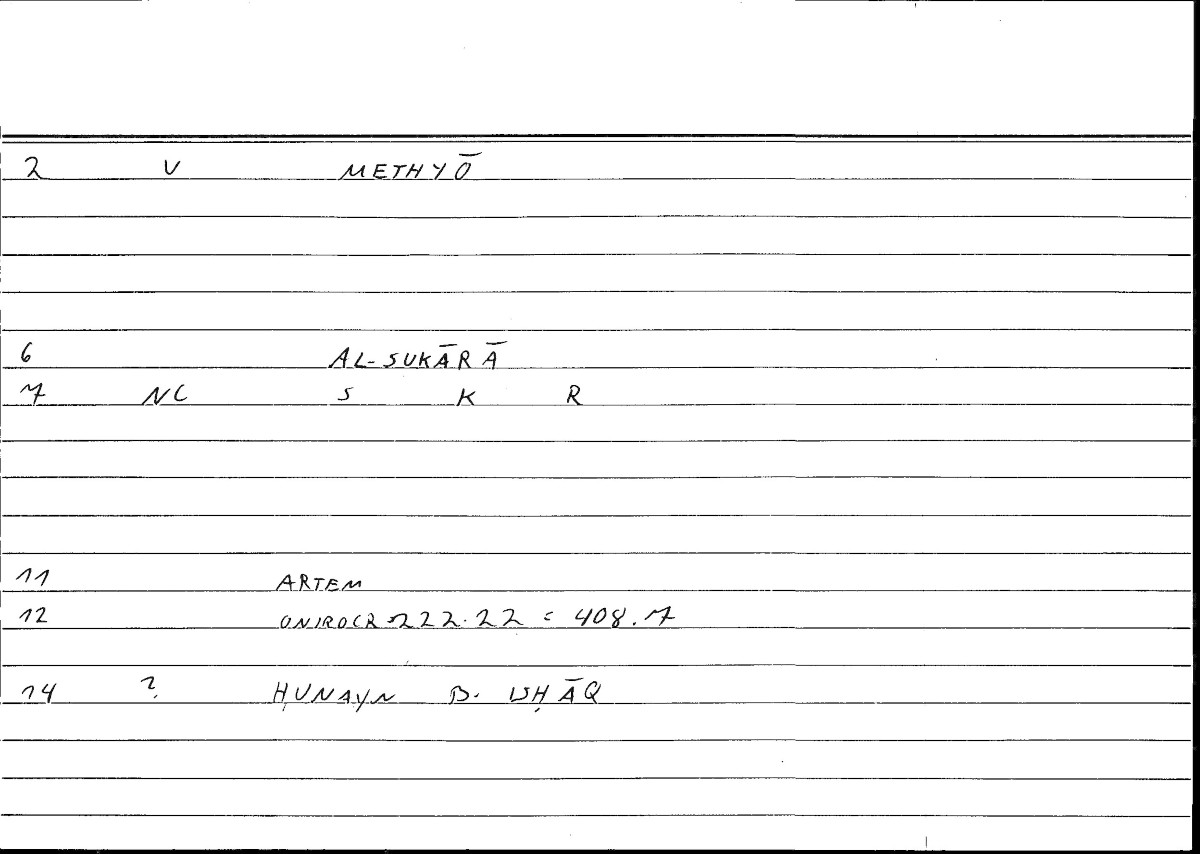 2 V METHYŌ
6 AL-SUKĀRĀ
7 NC S K R
11 ARTEM
12 ONIROCR 222.22 = 408.7
14 ? ḤUNAYN B. ISḤĀQ